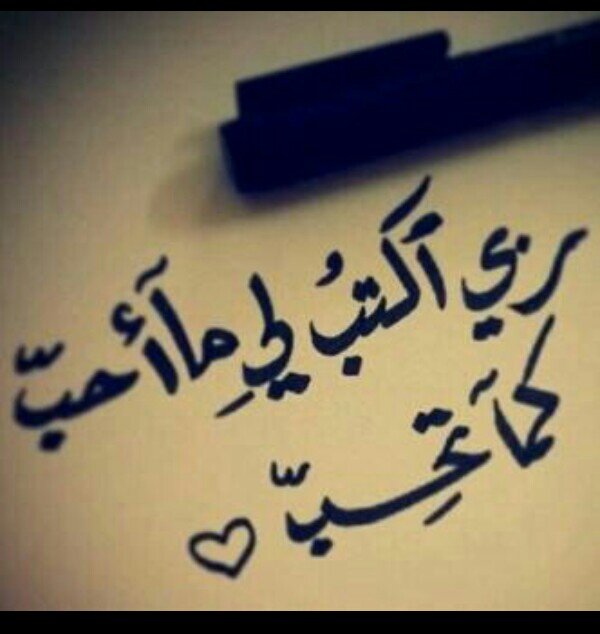 ربي أكتبُ لي مآ أحبّ
كمآ تحِبّ